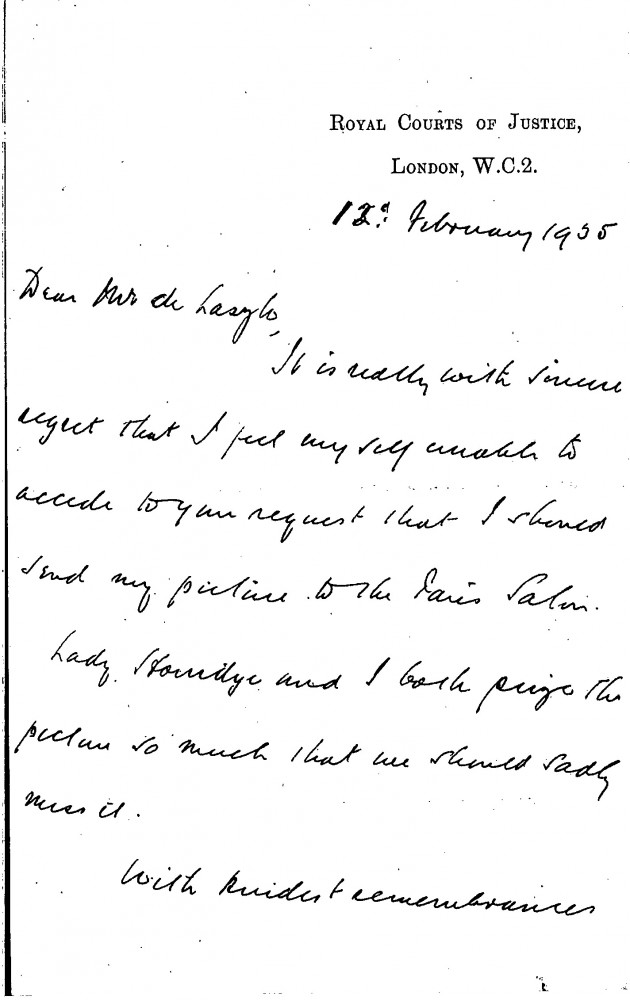 ROYAL COURTS OF JUSTICE,
LONDON, W.C.2.
12 February 1935
Dear Mr de Laszlo,
It is really with sincere
regret that I feel myself unable to
accede to your request that I should
send my picture to the Paris Salon.
Lady Horridge and I both prize the
picture so much that we should sadly
miss it.
With kindest remembrances